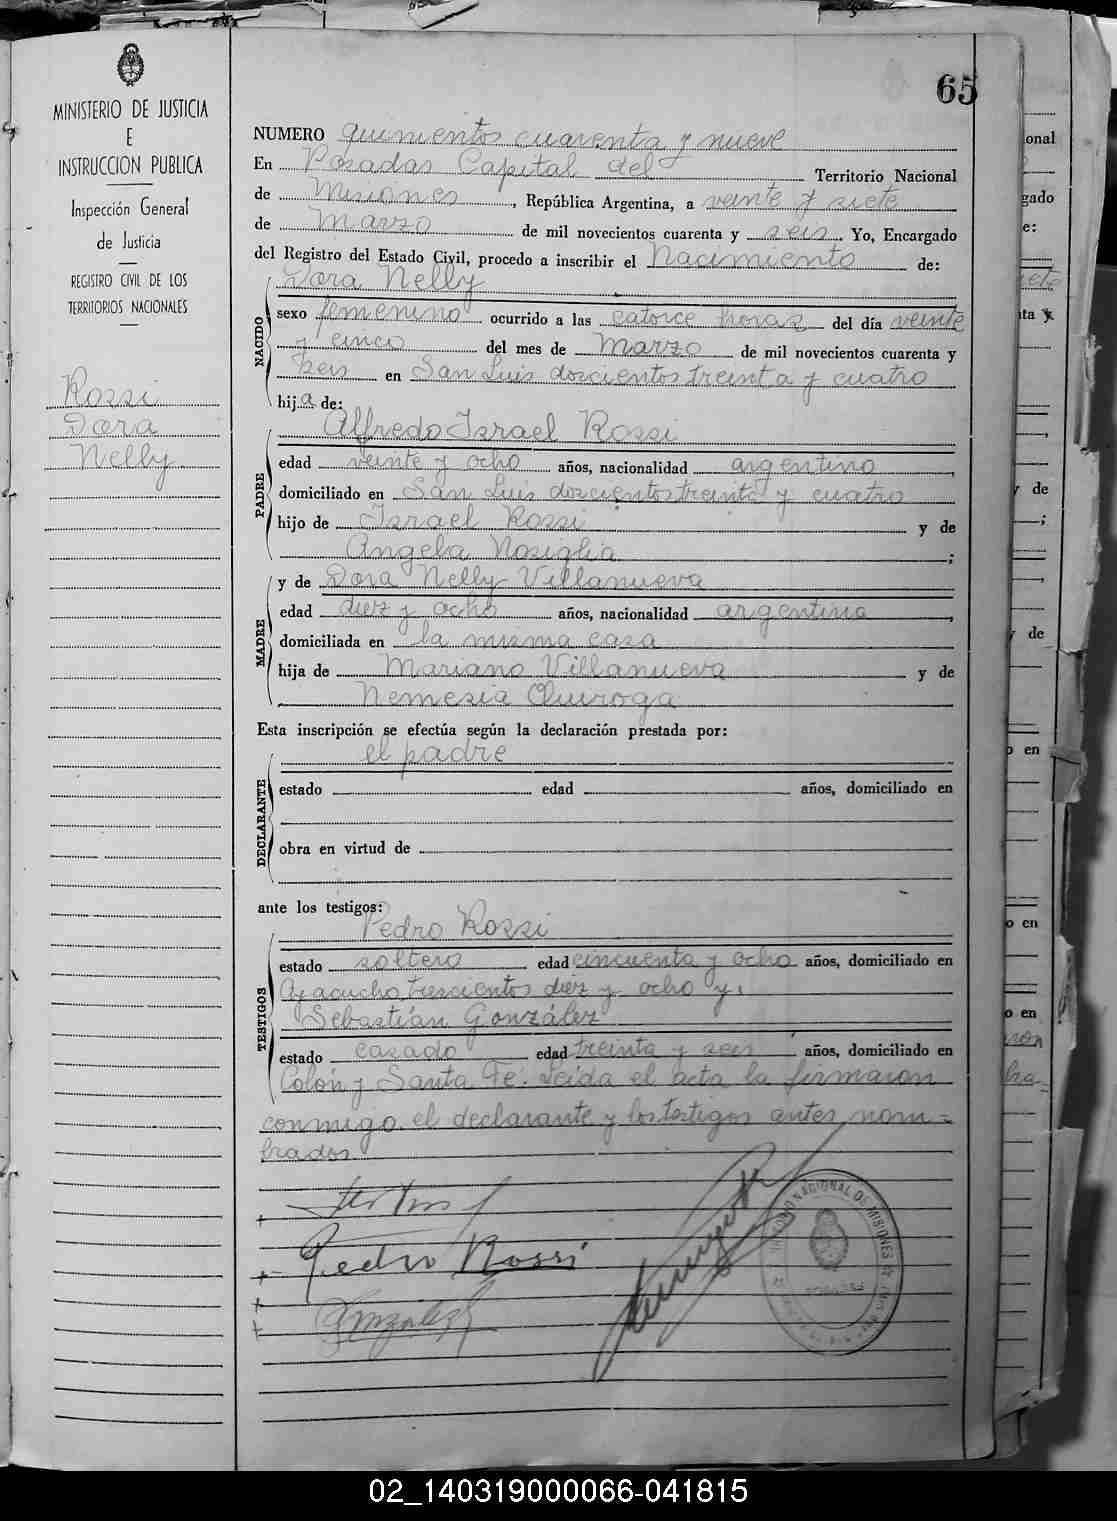 65
MINISTERIO DE JUSTICIA
E
INSTRUCCION PUBLICA
Inspección General
de Justicia
REGISTRO CIVIL DE LOS
TERRITORIOS NACIONALES
Rossi
Dora
Nelly
NUMERO quinientos cuarenta y nueve
En Posadas Capital del Territorio Nacional
de Misiones, República Argentina, a veinte y siete
de Marzo de mil novecientos cuarenta y seis. Yo, Encargado
del Registro del Estado Civil, procedo a inscribir el Nacimiento de:
NACIDO
Dora Nelly
sexo femenino ocurrido a las catorce horas del día veinte
y cinco del mes de Marzo de mil novecientos cuarenta y
seis en San Luis doscientos treinta y cuatro
hija de:
PADRE
Alfredo Israel Rossi
edad veinte y ocho años, nacionalidad argentino
domiciliado en San Luis doscientos treinta y cuatro
hijo de Israel Rossi y de
Angela Nosiglia;
MADRE
y de Dora Nelly Villanueva
edad diez y ocho años, nacionalidad argentina,
domiciliada en la misma casa
hija de Mariano Villanueva y de
Nemesia Quiroga
Esta inscripción se efectúa según la declaración prestada por:
DECLARANTE
el padre
estado edad años, domiciliado en
obra en virtud de
ante los testigos:
TESTIGOS
Pedro Rossi
estado soltero edad cincuenta y ocho años, domiciliado en
Ayacucho trescientos diez y ocho y,
Sebastián González
estado casado edad treinta y seis años, domiciliado en
Colón y Santa Fé. Leida el acta la firmaron
conmigo el declarante y los testigos antes nom=
brados
Pedro Rossi
González
TERRITORIO NACIONAL DE MISIONES
POSADAS
02_140319000066-041815